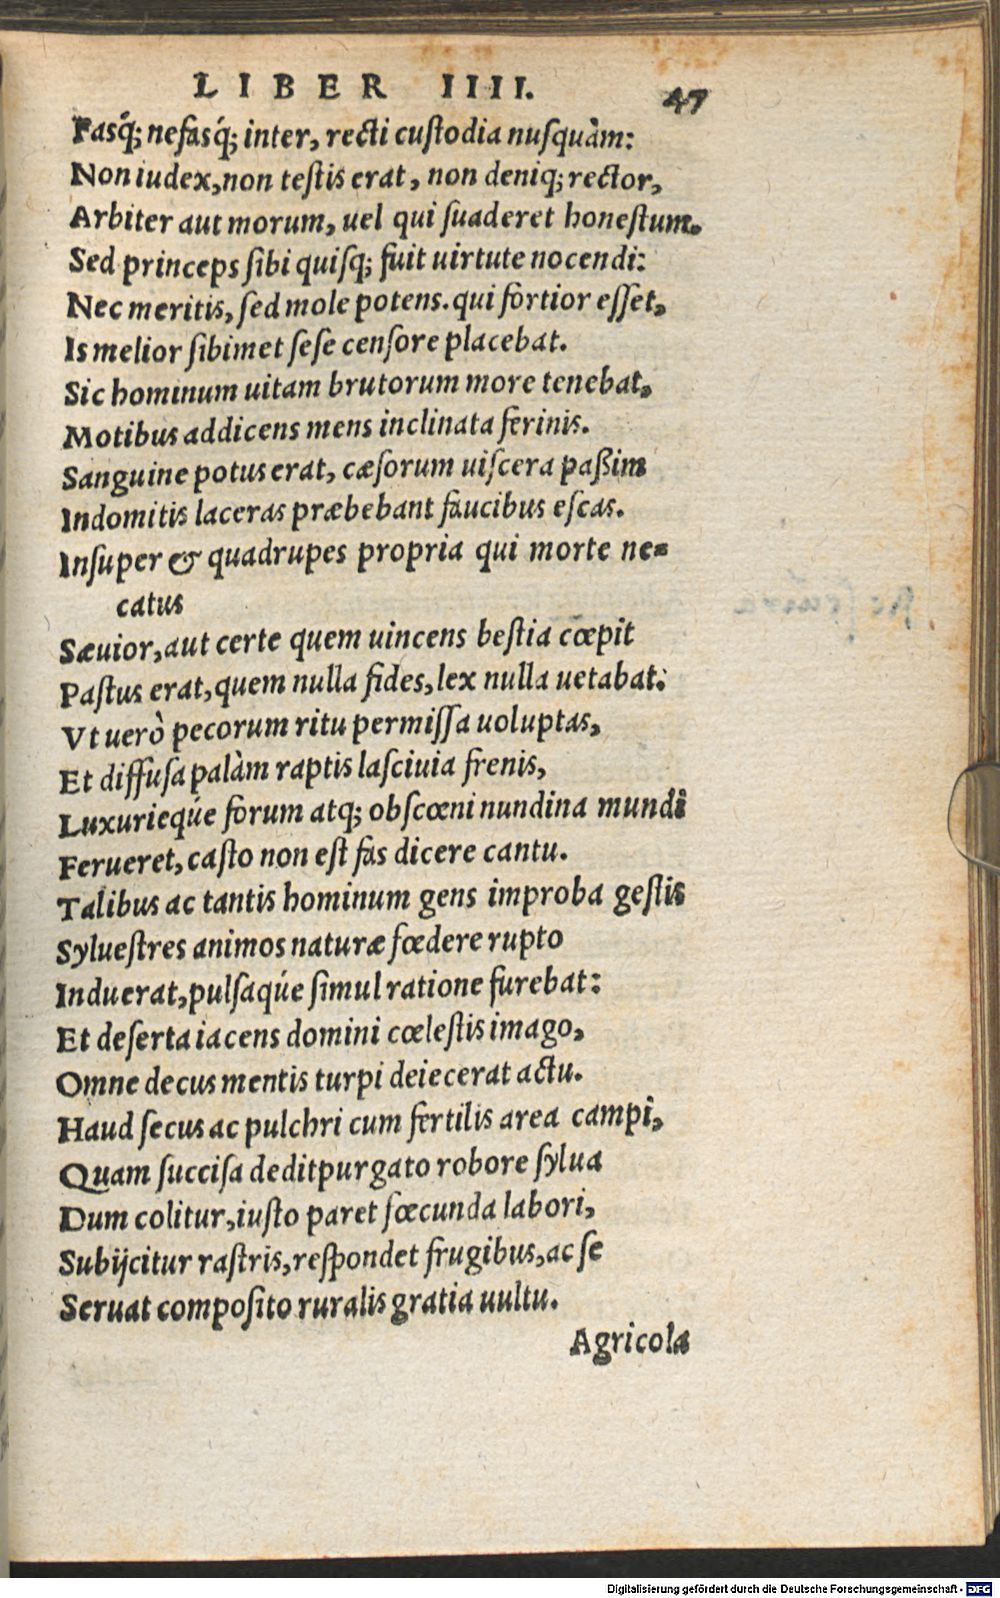 LIBER IIII.
47
Fasq́; nefasq́; inter, recti cuſtodia nuſquàm:
Non iudex, non teſtis erat, non deniq; rector,
Arbiter aut morum, uel qui ſuaderet honeſtum.
Sed princeps ſibi quiſq; fuit uirtute nocendi:
Nec meritis, ſed mole potens. qui fortior eſſet,
Is melior ſibimet ſeſe cenſore placebat.
Sic hominum uitam brutorum more tenebat,
Motibus addicens mens inclinata ferinis.
Sanguine potus erat, cæſorum uiſcera paßim
Indomitis laceras præbebant faucibus eſcas.
Inſuper & quadrupes propria qui morte ne=
catus
Sæuior, aut certe quem uincens beſtia cœpit
Paſtus erat, quem nulla fides, lex nulla uetabat.
Vt uerò pecorum ritu permiſſa uoluptas,
Et diffuſa palàm raptis laſciuia frenis,
Luxurieqúe forum atq; obſcœni nundina mundi
Ferueret, caſto non eſt fas dicere cantu.
Talibus ac tantis hominum gens improba geſtis
Sylueſtres animos naturæ fœdere rupto
Induerat, pulſaqúe ſimul ratione furebat:
Et deſerta iacens domini cœleſtis imago,
Omne decus mentis turpi deiecerat actu.
Haud ſecus ac pulchri cum fertilis area campi,
Quam ſucciſa dedit purgato robore ſylua
Dum colitur, iuſto paret fœcunda labori,
Subijcitur raſtris, reſpondet frugibus, ac ſe
Seruat compoſito ruralis gratia uultu.
Agricola
Digitalisierung gefördert durch die Deutsche Forschungsgemeinschaft - DFG